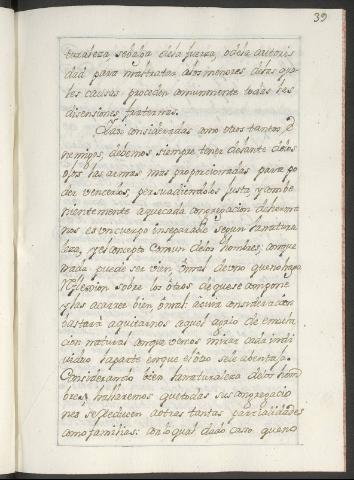 39
turaleza, se baba dela fuerza, o dela autori
dad para maltratar alos menores delas qua
les causas proceden comunmente todas las
disensiones fraternas.
Quas consideradas como otros tantos e
nemigos, debemos siempre tener delante delos
ojos las armas mas proporcionadas para po
der vencerlos, persuadiendolos justa, y combe
nientemente aquecada congregacion de herma
nos es un cuerpo inseparable segun la natura
leza, y el concepto comun delos hombres; conque
nada puede ser bien, ò mal de uno que no haga
reflexion sobre los otros de que se compone
y las acarree bien, ò mal, acuia consideracion
bastarà aquitarnos aquel agrio de emula
cion natural con que vemos mirar cada indi
viduo la parte en que el otro se le abentaja.
Considerando bien la naturaleza delos hom
bres, hallaremos que todas sus congregacio
nes se reducen a otras tantas parcialidades
como familias: con lo qual, dado caso, que no